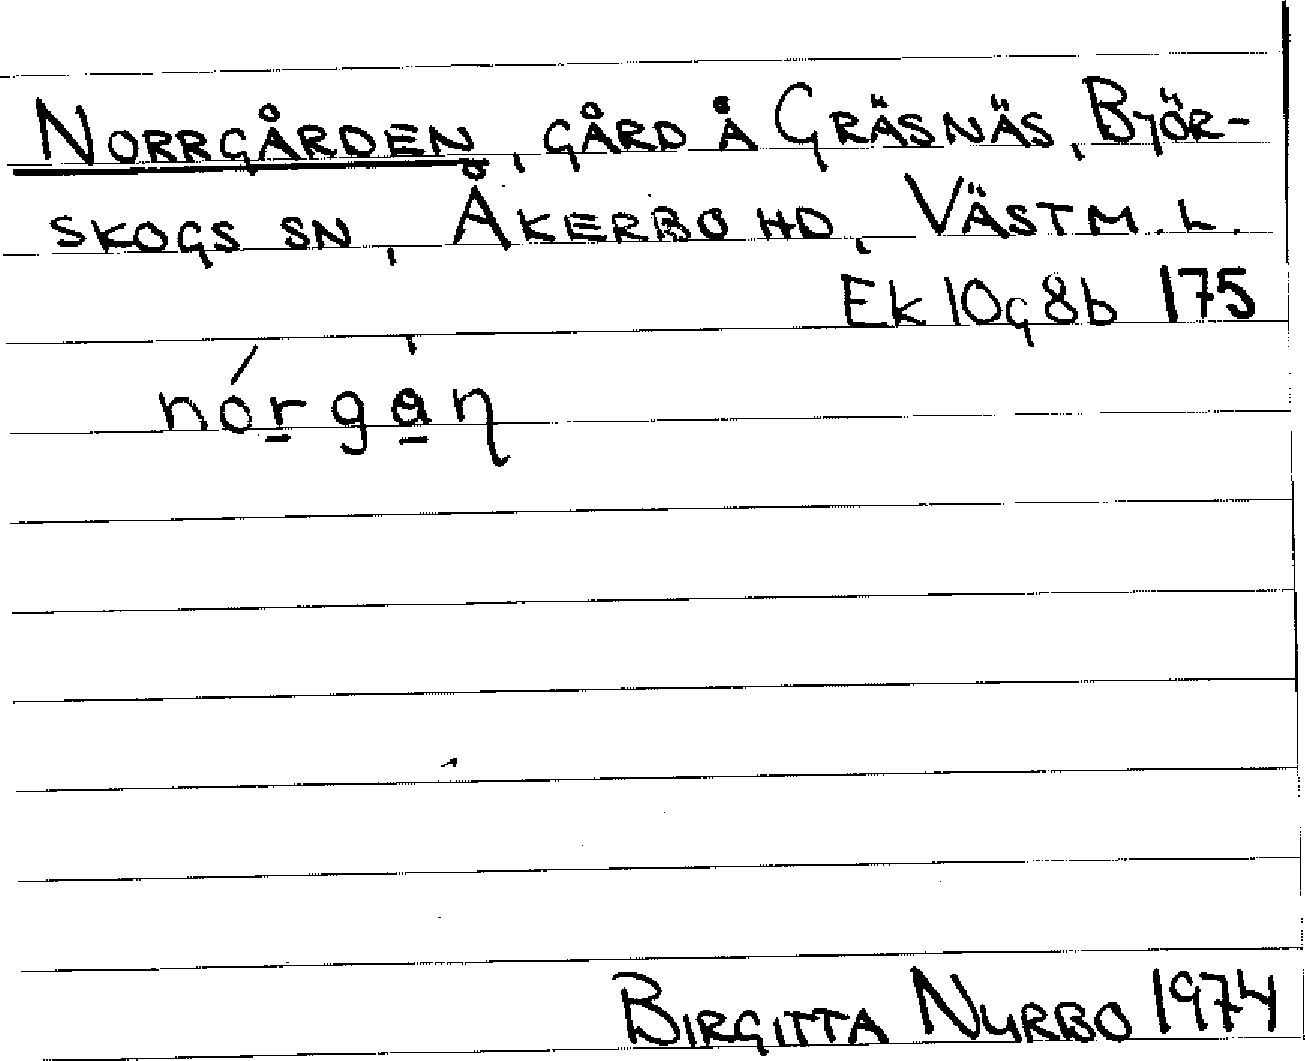 NORRGÅRDEN, GÅRD Å GRÄSNÄS, BJÖR-
SKOGS SN, ÅKERBO HD, VÄSTM. L.
Ek 10g8b 175
nórgａ̊ɳ
BIRGITTA NYRBO 1974